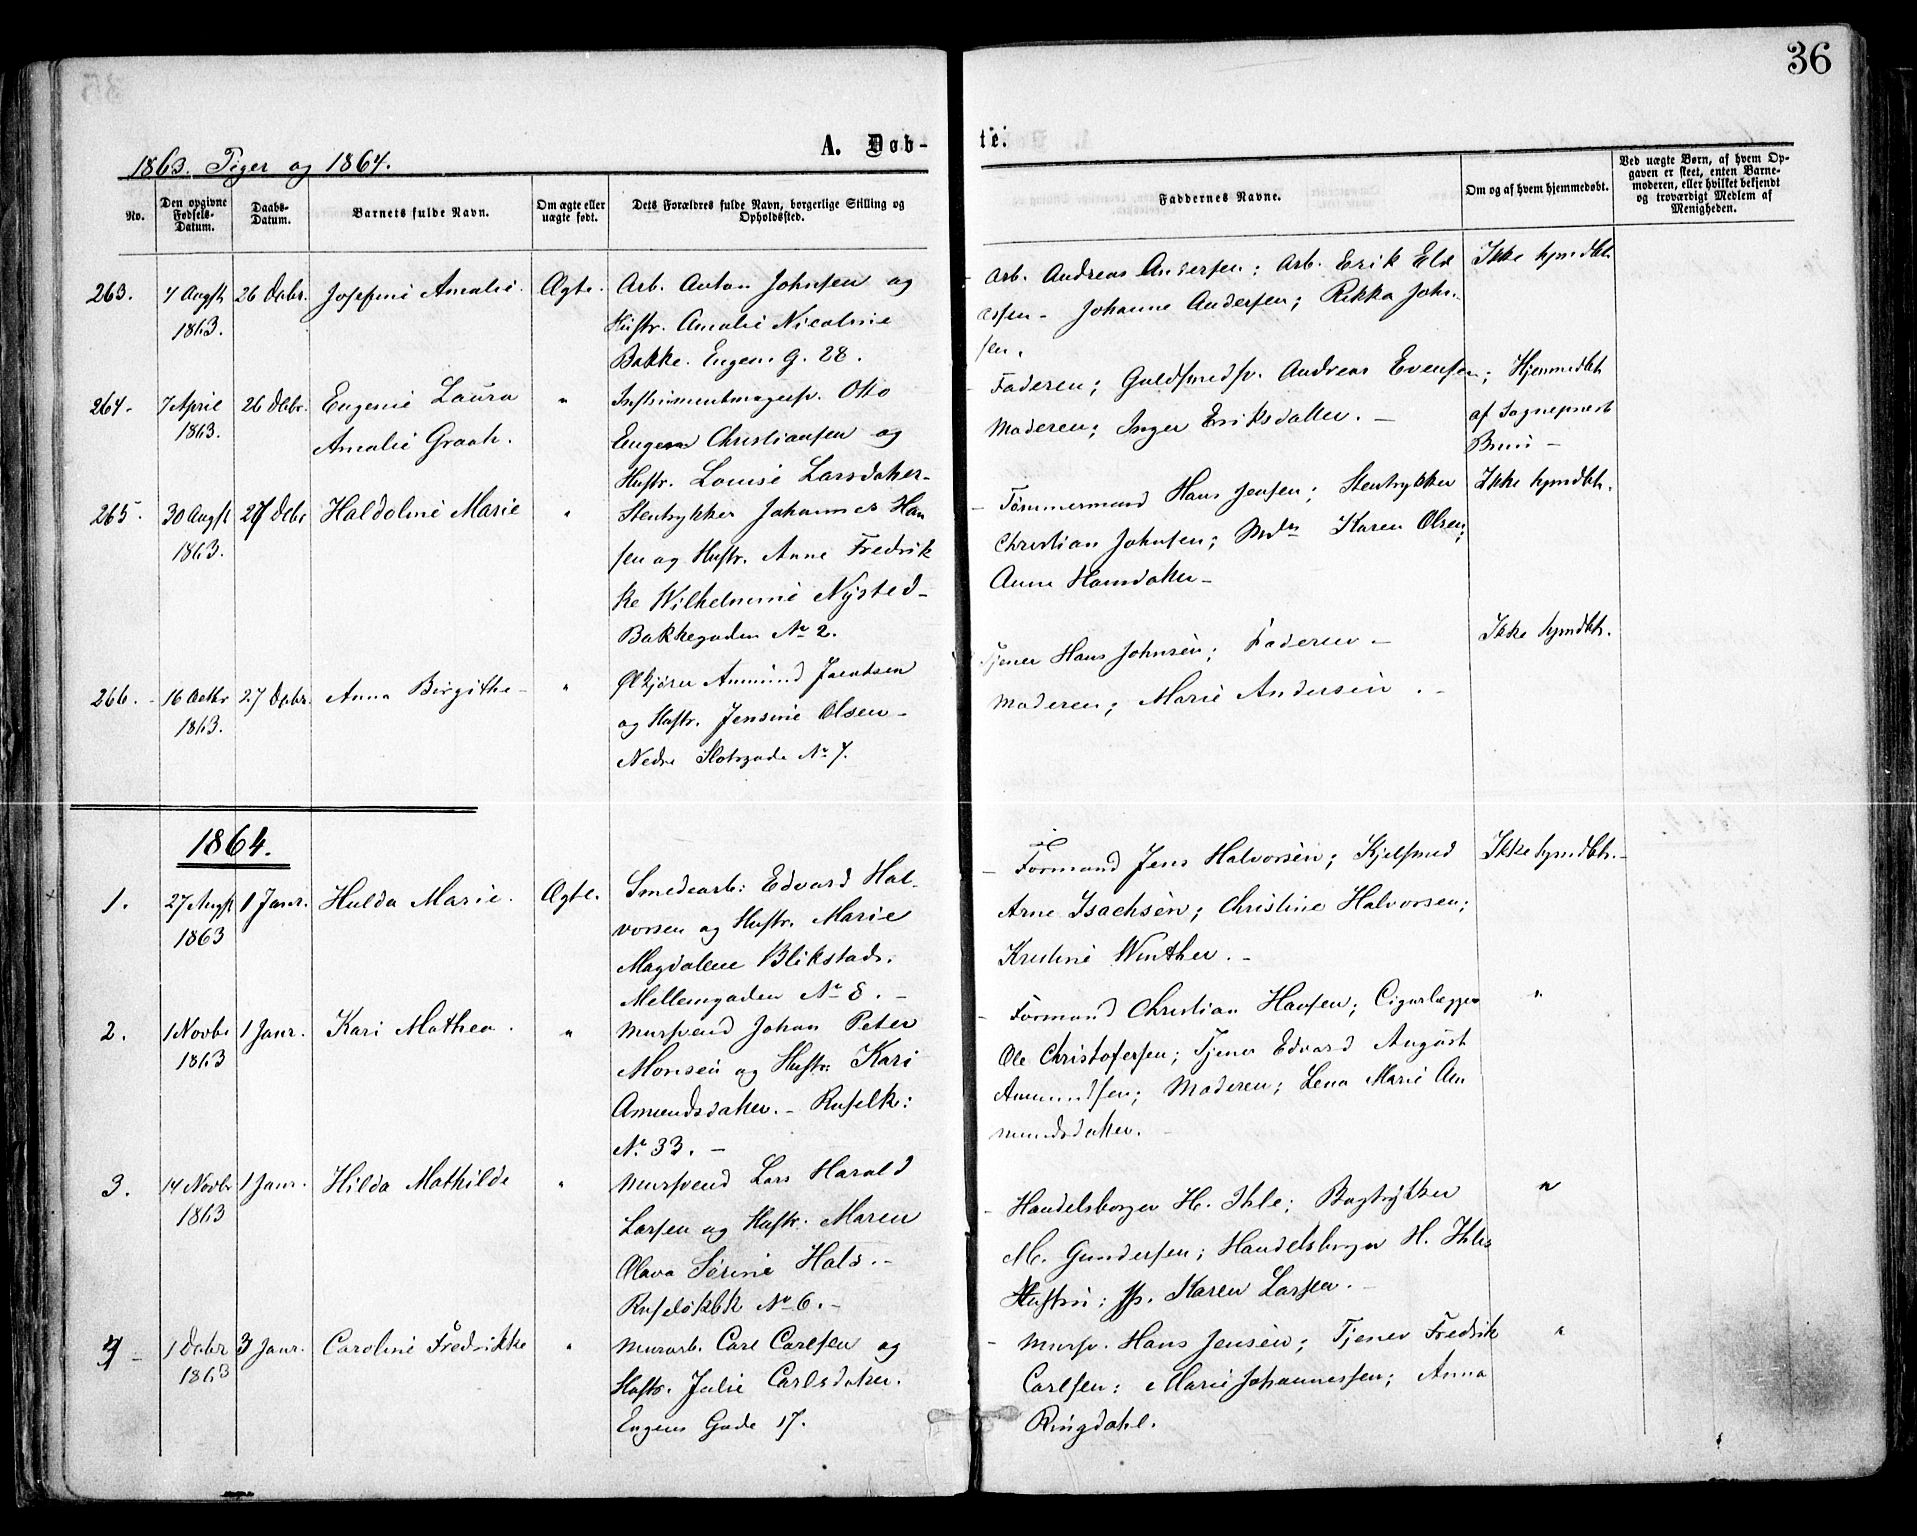 36
A. Døb-
te.
1863. Piger og 1864.
No.
Den opgivne Fødsels-Datum.
Daabs-Datum.
Barnets fulde Navn.
Om ægte eller uægte født.
Dets Forældres fulde Navn, borgerlige Stilling og Opholdssted.
Faddernes Navne.
Om og af hvem hjemmedøbt.
Ved uægte Børn, af hvem Op-
gaven er skeet, enten Barne-
moderen, eller hvilket bekjendt
og troværdigt Medlem af
Menigheden.
263. 7 Augst 26 Debr. Josefine Amalie. Ægte. Arb. Anton Johnsen og
1863. Hustr. Amalie Nicoline
Bakke. Engen G. 28.
Arb. Andreas Andersen; Arb. Erik Eld
Johanne Andersen; Rikka John-
sen.
Ikke hjmdbt.
264. 7 April 26 Debr. Eugenie Laura " Instrumentmagersv. Otto
1863. Amalie Graah. Eugen Christiansen og
Hustr. Louise Larsdatter-
Faderen; Guldsmedsv. Andreas Evensen; Hjemmedbt.
Moderen; Inger Eriksdatter. — af Sognepræst
Bruun —
265. 30 Augst 27 Debr Haldoline Marie " Stentrykker Johannes Han
1863. sen og Hustr. Anne Fredrik
ke Wilhelmine Nysted-
Bakkegaden No 2.
- Tømmermand Hans Jensen; Stentrykker Ikke hjmdbt.
Christian Johnsen; Mdm Karen Olsen;
Anne Hansdatter-
266. 16 Octbr 27 Debr. Anna Birgithe- " Ølkjører Ammund Jacobsen
1863. og Hustr. Jensine Olsen-
Nedre Slotsgade No 7.
Tjener Hans Johnsen; Faderen - Ikke hjmdbt.
Moderen; Marie Andersen. -
1864.
1. 27 Augst 1 Janr. Hulda Marie. Ægte. Smedearb: Edvard Hal-
1863 vorsen og Hustr. Marie
Magdalene Blikstad.
Mellemgaden No 8. -
- Formand Jens Halvorsen; Kjelsmed Ikke hjmdbt.-
Arne Isachsen; Christine Halvorsen;
Kristine Winther. -
2. 1 Novbr 1 Janr. Kari Mathea. " Mursvend Johan Peter
1863 Monsen og Hustr: Kari
Amundsdatter. - Ruselk:
No 33. -
- Formand Christian Hansen; Cigarlægger "
Ole Christofersen; Tjener Edvard August
Ammundsen; Moderen; Lena Marie Am
mundsdatter. -
3. 14 Novbr 1 Janr. Hilda Mathilde " Mursvend Lars Harald
1863 Larsen og Hustr. Maren
Olava Sørine Hals. -
Ruseløkbk No 6. -
- Handelsborger H. Ihle; Bogtrykker "
M. Gundersen; Handelsborger H. Ihles
Hustru; Karen Larsen. -
4 - 1 Debr 3 Janr. Caroline Fredrikke " Murarb. Carl Carlsen og
1863 Hustr. Julie Carlsdatter.
Engens Gade 17.
- Mursv. Hans Jensen; Tjener Fredrik "
Carlsen; Marie Johannessen; Anna
Ringdahl.